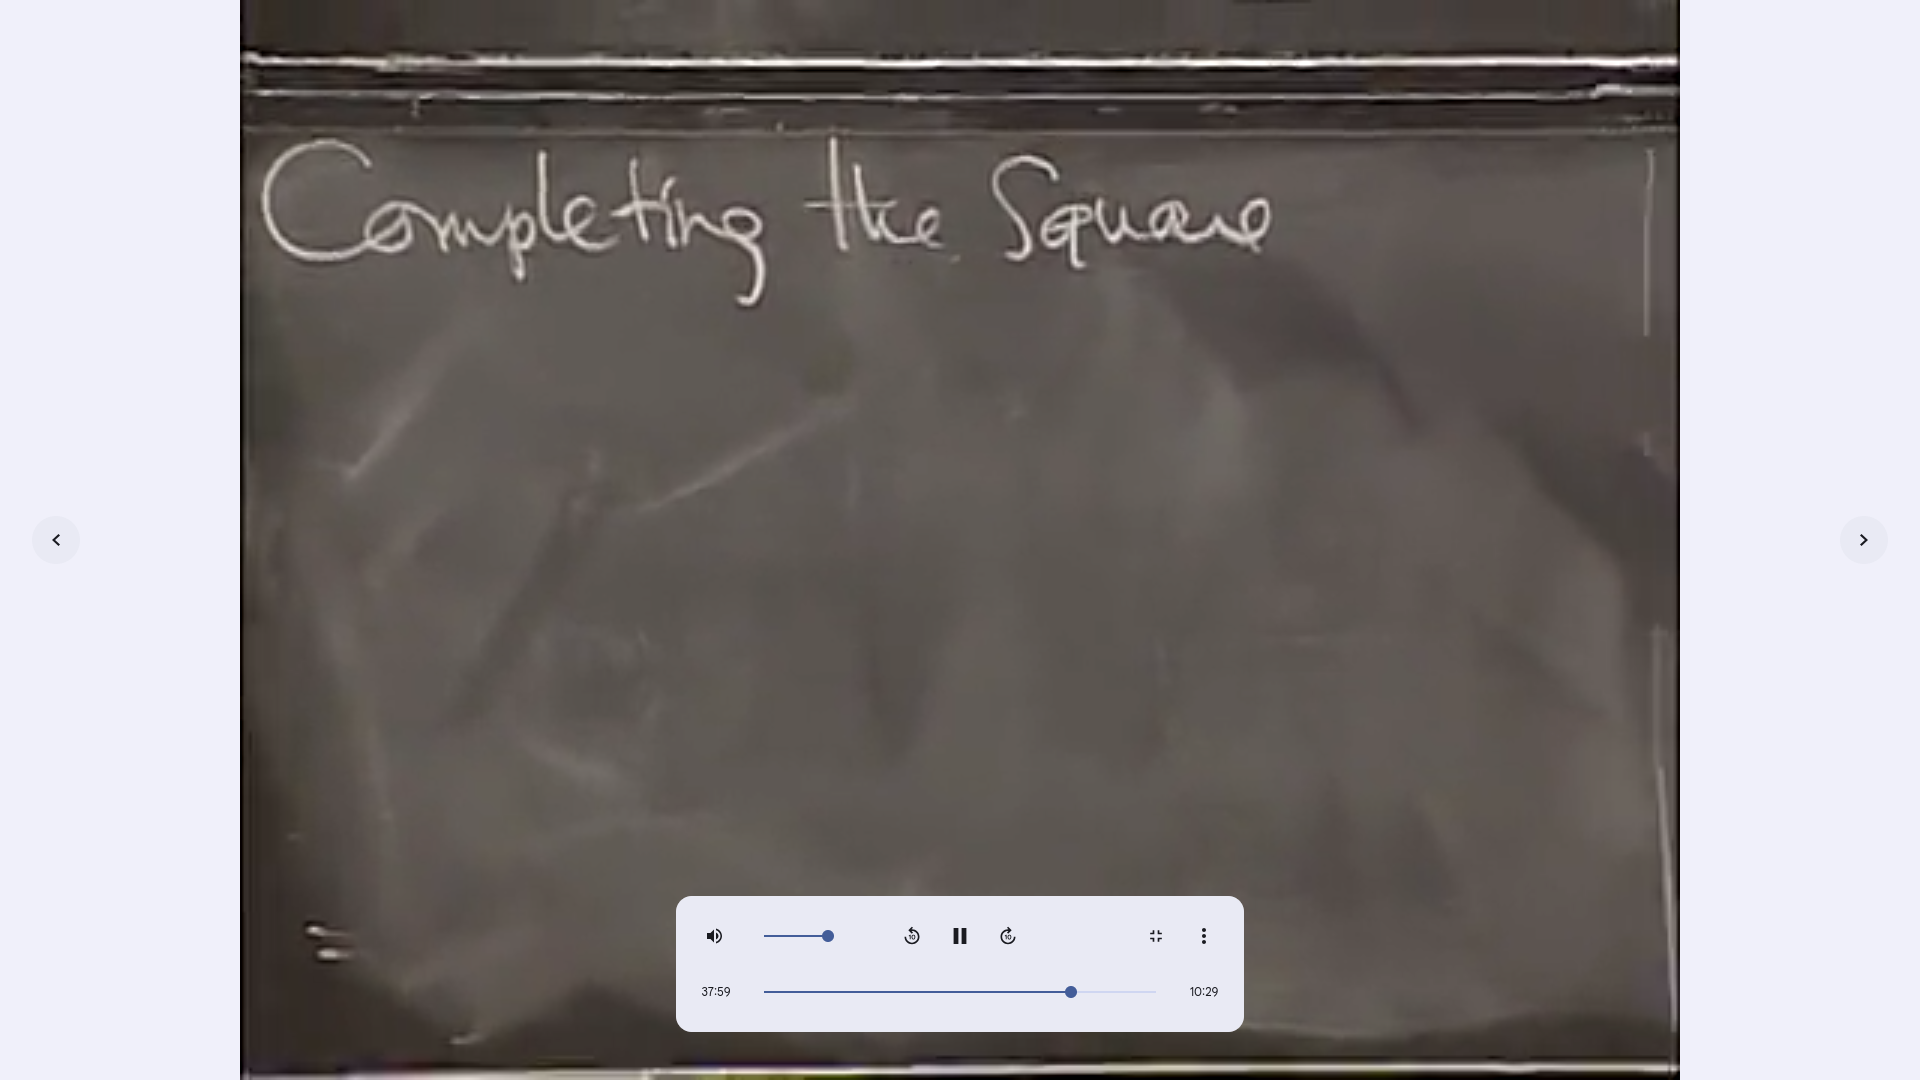 Completing the Square
37:59
10:29